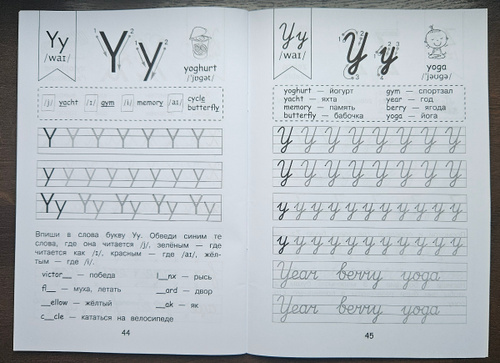 Yy
/waɪ/
Yy
yoghurt
/ˈjɒgət/
/j/ yacht /ɪ/ gym /i/ memory /aɪ/ cycle
butterfly
Y Y Y Y Y Y Y
y y y y y y y y
Yy Yy Yy Yy Yy
Впиши в слова букву Yy. Обведи синим те
слова, где она читается /j/, зелёным — где
читается как /ɪ/, красным — где /aɪ/, жёл-
тым — где /i/.
victor__ — победа
l__nx — рысь
fl__ — муха, летать
__ard — двор
__ellow — жёлтый
__ak — як
c__cle — кататься на велосипеде
44
Yy
/waɪ/
Yy
yoga
/ˈjəʊgə/
yoghurt — йогурт
yacht — яхта
memory — память
butterfly — бабочка
gym — спортзал
year — год
berry — ягода
yoga — йога
Y Y Y Y Y Y Y Y
Y Y Y Y Y Y Y Y
y y y y y y y y y y
y y y y y y y y y y
Year berry yoga
Year berry yoga
45